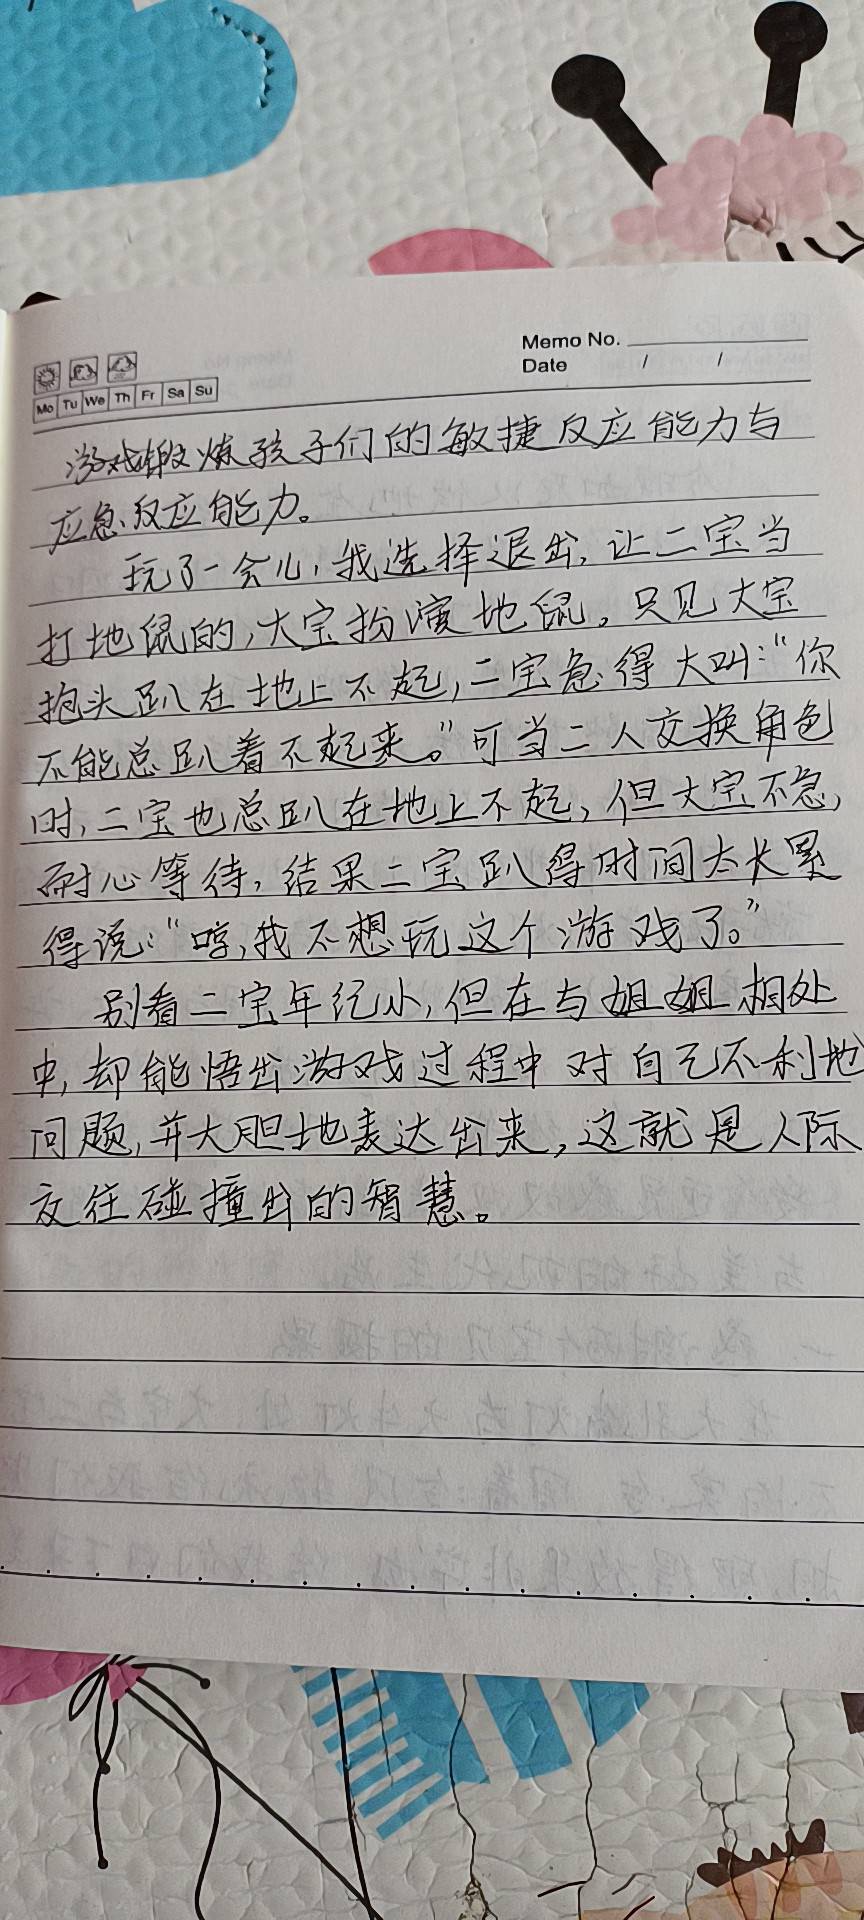 Memo No.
Date / /
Mo Tu We Th Fr Sa Su
游戏锻炼孩子们的敏捷反应能力与
应急反应能力。
玩了一会儿，我选择退出，让二宝当
打地鼠的，大宝扮演地鼠。只见大宝
抱头趴在地上不起，二宝急得大叫：“你
不能总趴着不起来。”可当二人交换角色
时，二宝也总趴在地上不起，但大宝不急，
耐心等待，结果二宝趴得时间太长累
得说：“哼，我不想玩这个游戏了。”
别看二宝年纪小，但在与姐姐相处
中，却能悟出游戏过程中对自己不利地
问题，并大胆地表达出来，这就是人际
交往碰撞出的智慧。